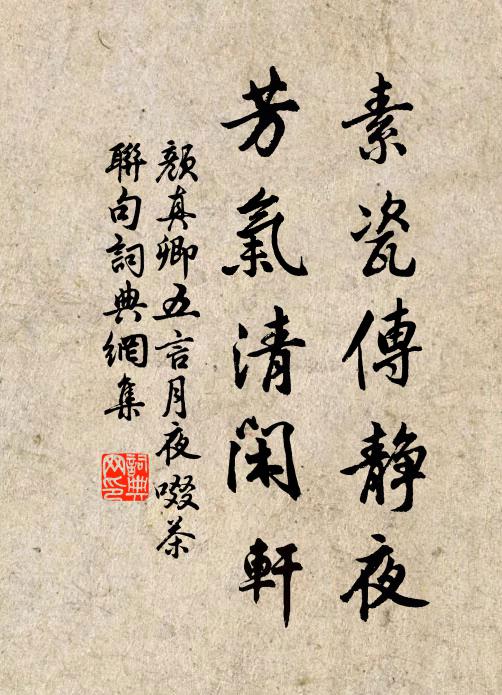 素瓷傳静夜
芳氣清閑軒
顏真卿五言月夜啜茶
聯句詞典網集
詞典网印